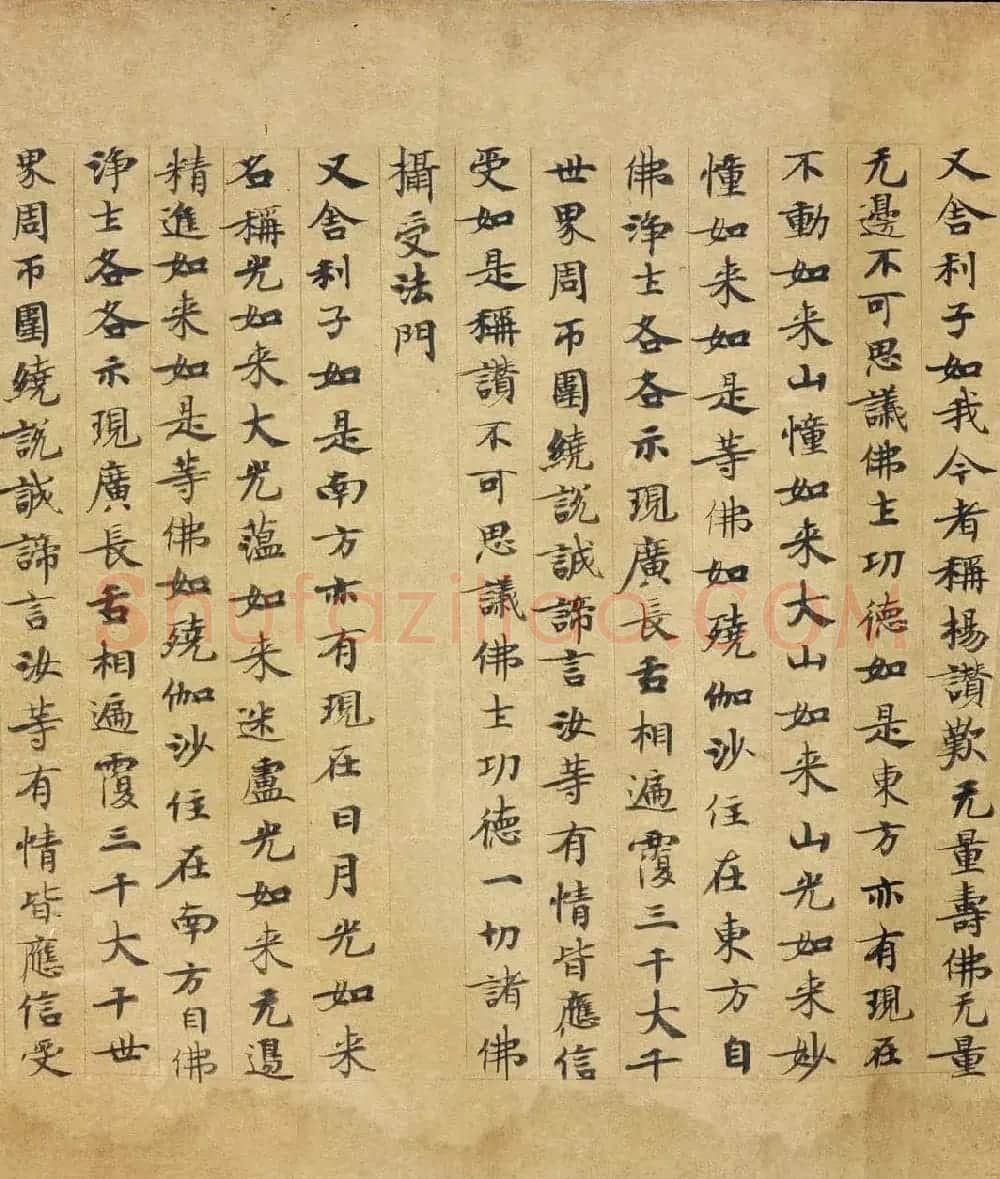 又舍利子如我今者稱揚讚歎无量壽佛无量
无邊不可思議佛土功德如是東方亦有現在
不動如来山憧如来大山如来山光如来妙
憧如来如是等佛如殑伽沙住在東方自
佛淨土各各示現廣長舌相遍覆三千大千
世界周帀圍繞說誠諦言汝等有情皆應信
受如是稱讚不可思議佛土功德一切諸佛
攝受法門
又舍利子如是南方亦有現在日月光如来
名稱光如来大光蕴如来迷盧光如来无邊
精進如来如是等佛如殑伽沙住在南方自佛
淨土各各示現廣長舌相遍覆三千大千世
界周帀圍繞說誠諦言汝等有情皆應信受
Shufaziliao.COM